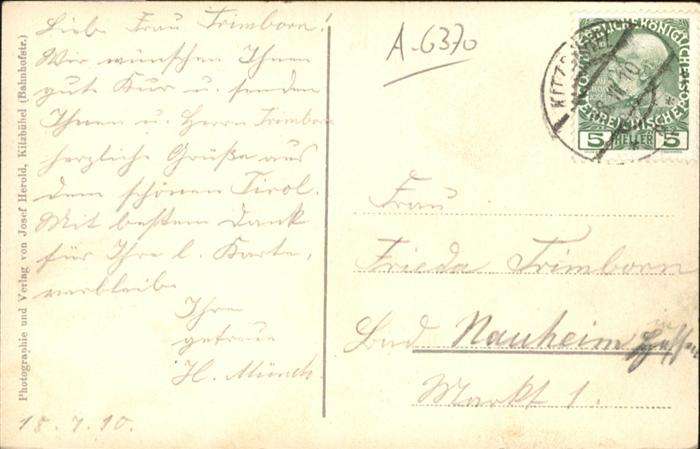 Liebe Frau Trimborn!
Wir wünschen Ihnen
gute Kur u. senden
Ihnen u. Herrn Trimborn
herzliche Grüße aus
dem schönen Tirol.
Mit bestem Dank
für Ihre l. Karte,
verbleibe
Ihre
getreue
H. Münch
18.7.10.
Photographie und Verlag von Josef Herold, Kitzbühel (Bahnhofstr.)
A-6370
5 HELLER 5
Frau
Frieda Trimborn
Bad Nauheim Hessen
Markt 1.